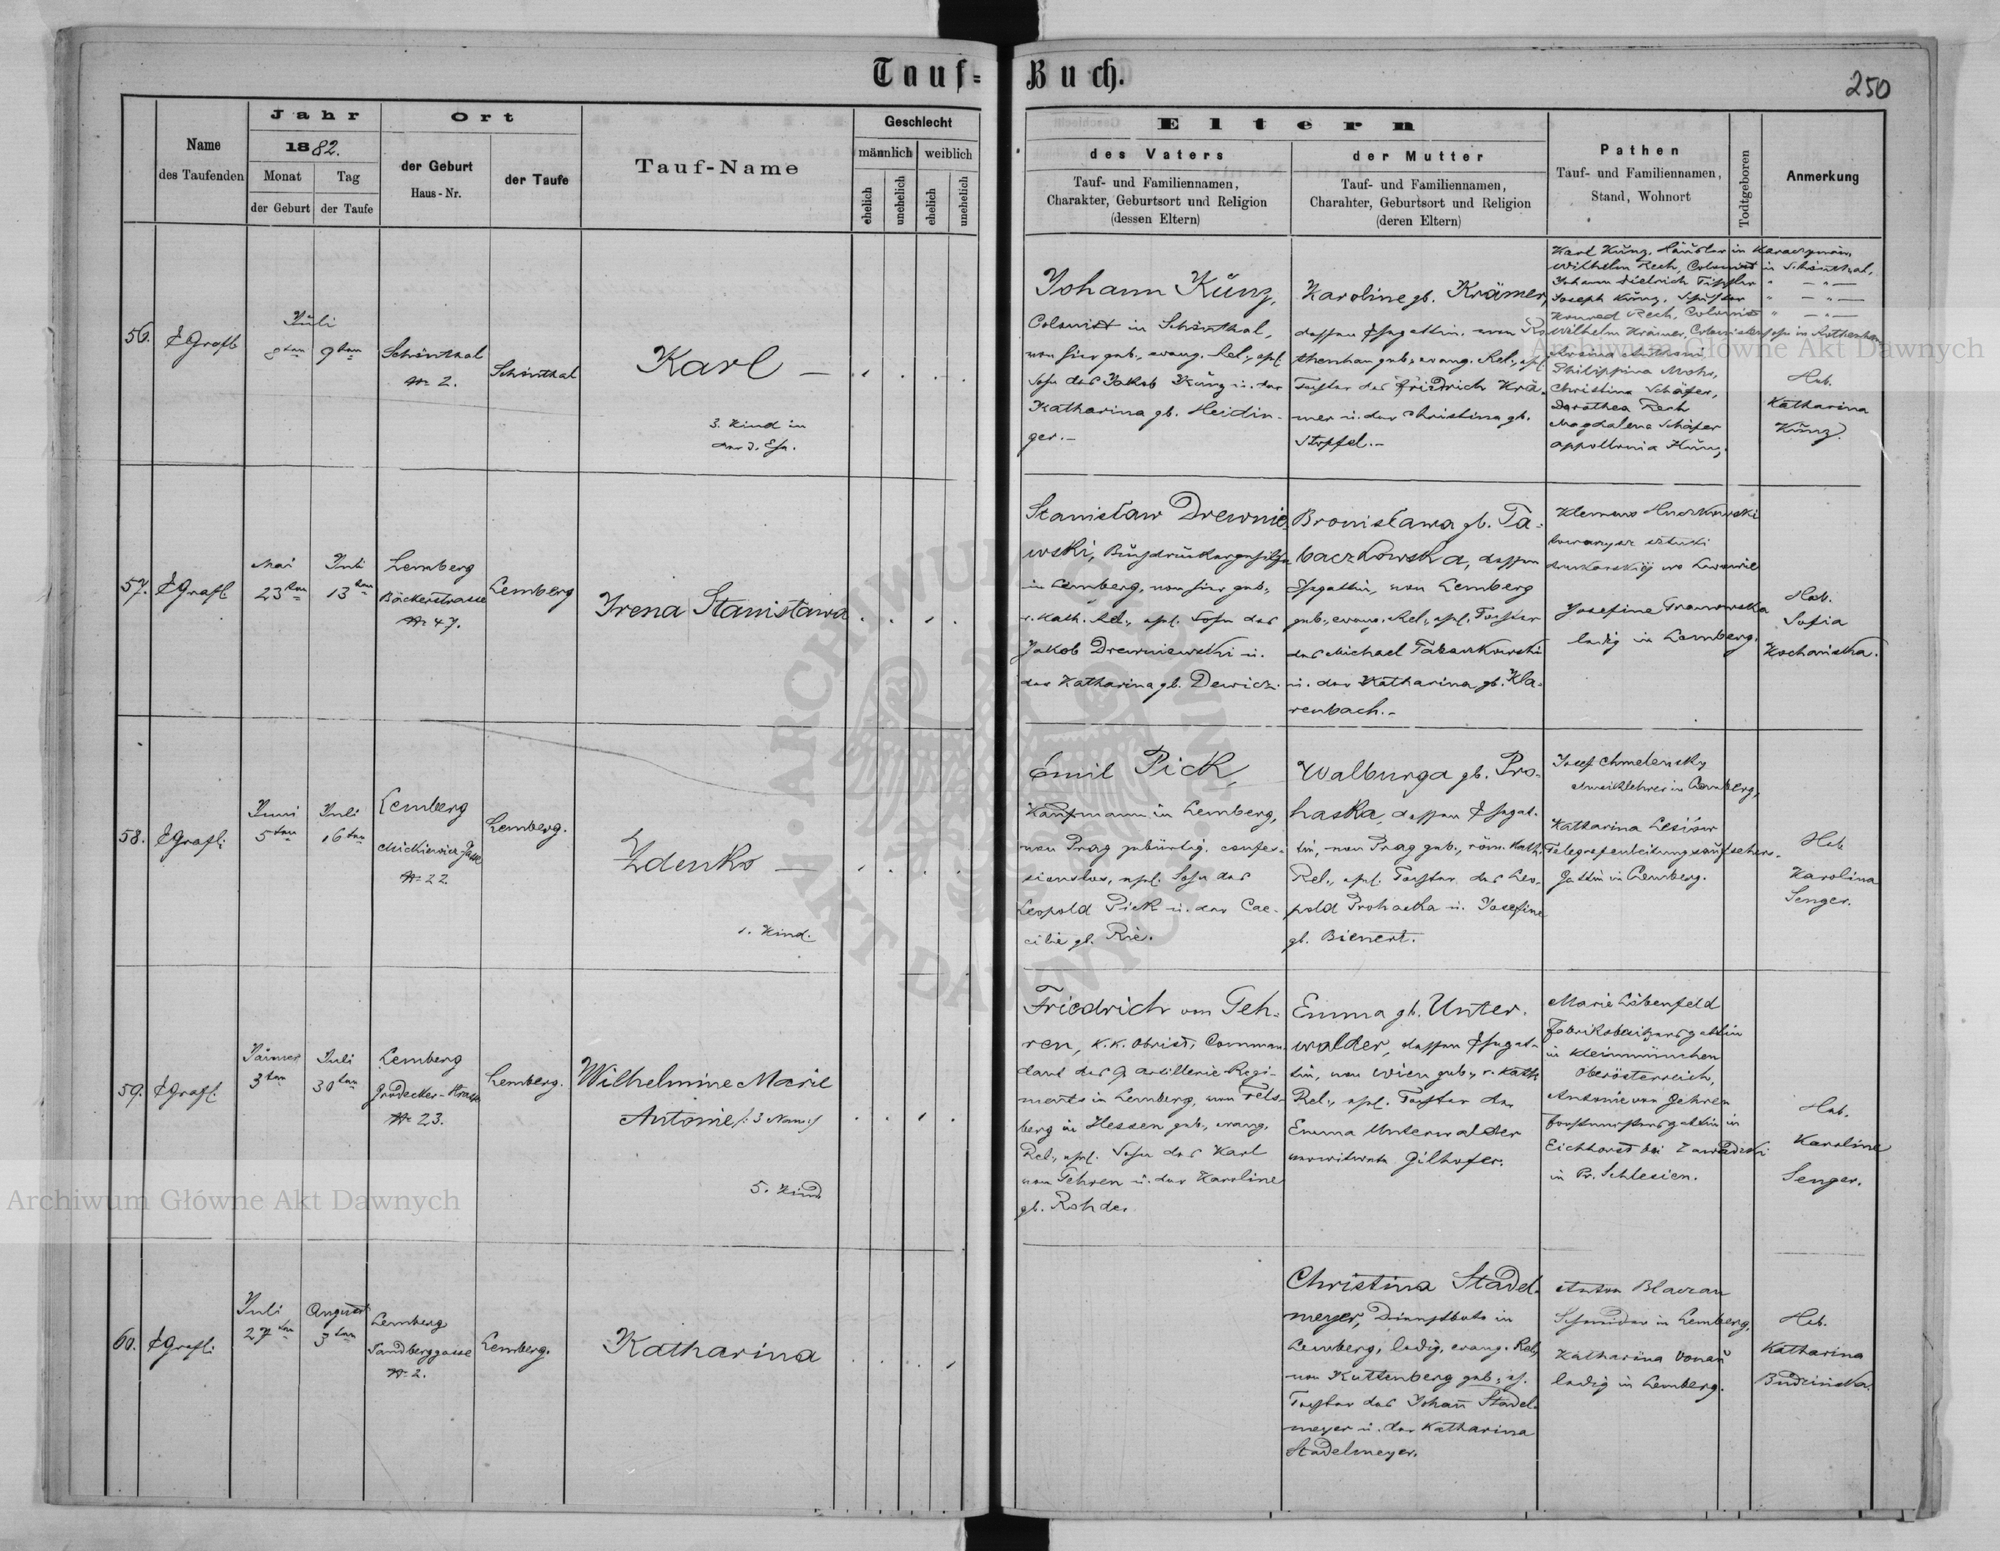 Tauf-Buch.
250
Name des Taufenden
Jahr
1882.
Monat
Tag
der Geburt
der Taufe
Ort
der Geburt
Haus-Nr.
der Taufe
Tauf-Name
Geschlecht
männlich
weiblich
ehelich
unehelich
ehelich
unehelich
Eltern
des Vaters
Tauf- und Familiennamen,
Charakter, Geburtsort und Religion
(dessen Eltern)
der Mutter
Tauf- und Familiennamen,
Charahter, Geburtsort und Religion
(deren Eltern)
Pathen
Tauf- und Familiennamen,
Stand, Wohnort
Todtgeboren
Anmerkung
56.
Juli
8ten
9ten
Schönthal
№ 2.
Schönthal
Karl —
3. Kind in
der 3. Ehe.
Johann Künz,
Colonist in Schönthal,
von hier geb., evang. Rel., ehl.
Sohn des Jakob Künz u. der
Katharina gb. Heidin-
ger.—
Karoline gb. Krämer,
dessen Ehegattin, von Ro-
thenhan geb., evang. Rel., ehl.
Tochter des Friedrich Krä-
mer u. der Christina gb.
Stopfel.—
Karl Künz,
Wilhelm Rech, Colonist in Schönthal,
Johann Dietrich
Joseph Künz,
Konrad Rech, Colonist
Wilhelm Krämer, Colonistensohn in Rothenhan
Philippina Mohr,
Christina Schäfer,
Dorothea Rech
Magdalena Schäfer
Appollonia Künz,
Heb.
Katharina
Künz.
57.
Mai
23ten
Juli
13ten
Lemberg
Bäckerstrasse
№ 47.
Lemberg
Irena Stanisława
Stanisław Drewnie-
wski, Buchdruckergehilfe
in Lemberg, von hier geb.,
r. kath. Rel., ehl. Sohn des
Jakob Drewniewski u.
der Katharina gb. Dewicz.
Bronisława gb. Ta-
baczkowska, dessen
Ehegattin, von Lemberg
geb., evang. Rel., ehl. Tochter
des Michael Tabaczkowski
u. der Katharina gb. Kla-
renbach.—
Klemens Huczkowski
towarzysz sztuki
drukarskiej we Lwowie
Josefine
ledig in Lemberg.
Heb.
Sofia
Kochańska.
58.
Juni
5ten
Juli
16ten
Lemberg
Mickiewicz-Gasse
№ 22.
Lemberg.
Zdenko —
1. Kind.
Emil Pick,
Kaufmann in Lemberg,
von Prag gebürtig, confes-
sionslos, ehl. Sohn des
Leopold Pick u. der Cae-
cilie gb. Rie.
Walburga gb. Pro-
haska, dessen Ehegat-
tin, von Prag geb., röm. kath.
Rel., ehl. Tochter des Leo-
pold Prohaska u. Josefine
gb. Bienert.
Josef Chmelensky
Musiklehrer in Lemberg,
Katharina
Telegrafenleitungsaufsehers-
Gattin in Lemberg.
Heb.
Karolina
Senger.
59.
Jänner
3ten
Juli
30ten
Lemberg
Grodecker-Strasse
№ 23.
Lemberg.
Wilhelmine Marie
Antonie /: 3 Nam :/
5. Kind
Friedrich von Geh-
ren, k.k. Obrist, Comman-
dant des 9 Artillerie-Regi-
ments in Lemberg, von Fels-
berg in Hessen geb., evang.
Rel., ehl. Sohn des Karl
von Gehren u. der Karoline
gb. Rohde.
Emma gb. Unter-
walder, dessen Ehegat-
tin, von Wien geb., r. kath.
Rel., ehl. Tochter der
Emma Unterwalder
verwitwete Gilhofer.
Marie Löbenfeld
Fabriksbesitzersgattin
in Kleinmünchen
Oberösterreich,
Antonie von Gehren
Forstmeistersgattin in
Eichhorst bei Zawadzki
in Pr. Schlesien.
Heb.
Karoline
Senger.
60.
Juli
27ten
August
3ten
Lemberg
Sandberggasse
№ 2.
Lemberg.
Katharina
Christina Stadel-
meyer, Dienstbote in
Lemberg, ledig, evang. Rel.
von Kuttenberg geb., eh.
Tochter des Johañ Stadel-
meyer u. der Katharina
Stadelmeyer.
Anton Blaczan
Schneider in Lemberg,
Katharina Vonau
ledig in Lemberg.
Heb.
Katharina
Budzinska.
Archiwum Główne Akt Dawnych
Archiwum Główne Akt Dawnych
ARCHIWUM GŁÓWNE AKT DAWNYCH